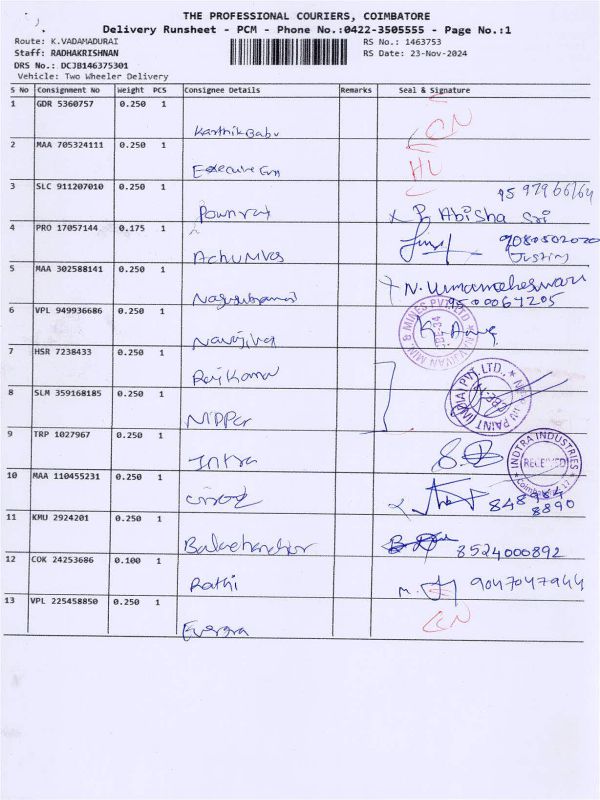 THE PROFESSIONAL COURIERS, COIMBATORE
Delivery Runsheet - PCM - Phone No.:0422-3505555 - Page No.:1
Route: K.VADAMADURAI
RS No.: 1463753
Staff: RADHAKRISHNAN
RS Date: 23-Nov-2024
DRS No.: DCJB146375301
Vehicle: Two Wheeler Delivery
S No Consignment No Weight PCS Consignee Details Remarks Seal & Signature
1 GDR 5360757 0.250 1
KarthikBabu CN
2 MAA 705324111 0.250 1
HL
3 SLC 911207010 0.250 1
Pownraj Abisha Sri
4 PRO 17057144 0.175 1
9080502020
Justin
5 MAA 302588141 0.250 1
N. Umamaheswari
9500067205
6 VPL 949936686 0.250 1
7 HSR 7238433 0.250 1
Rajkumar
8 SLM 359168185 0.250 1
NIPPer
9 TRP 1027967 0.250 1
Intra
INDTRA INDUSTRIES
RECEIVED
10 MAA 110455231 0.250 1
8890
11 KMU 2924201 0.250 1
Balachandar 8524000892
12 COK 24253686 0.100 1
Rathi 9047047944
13 VPL 225458850 0.250 1
CN